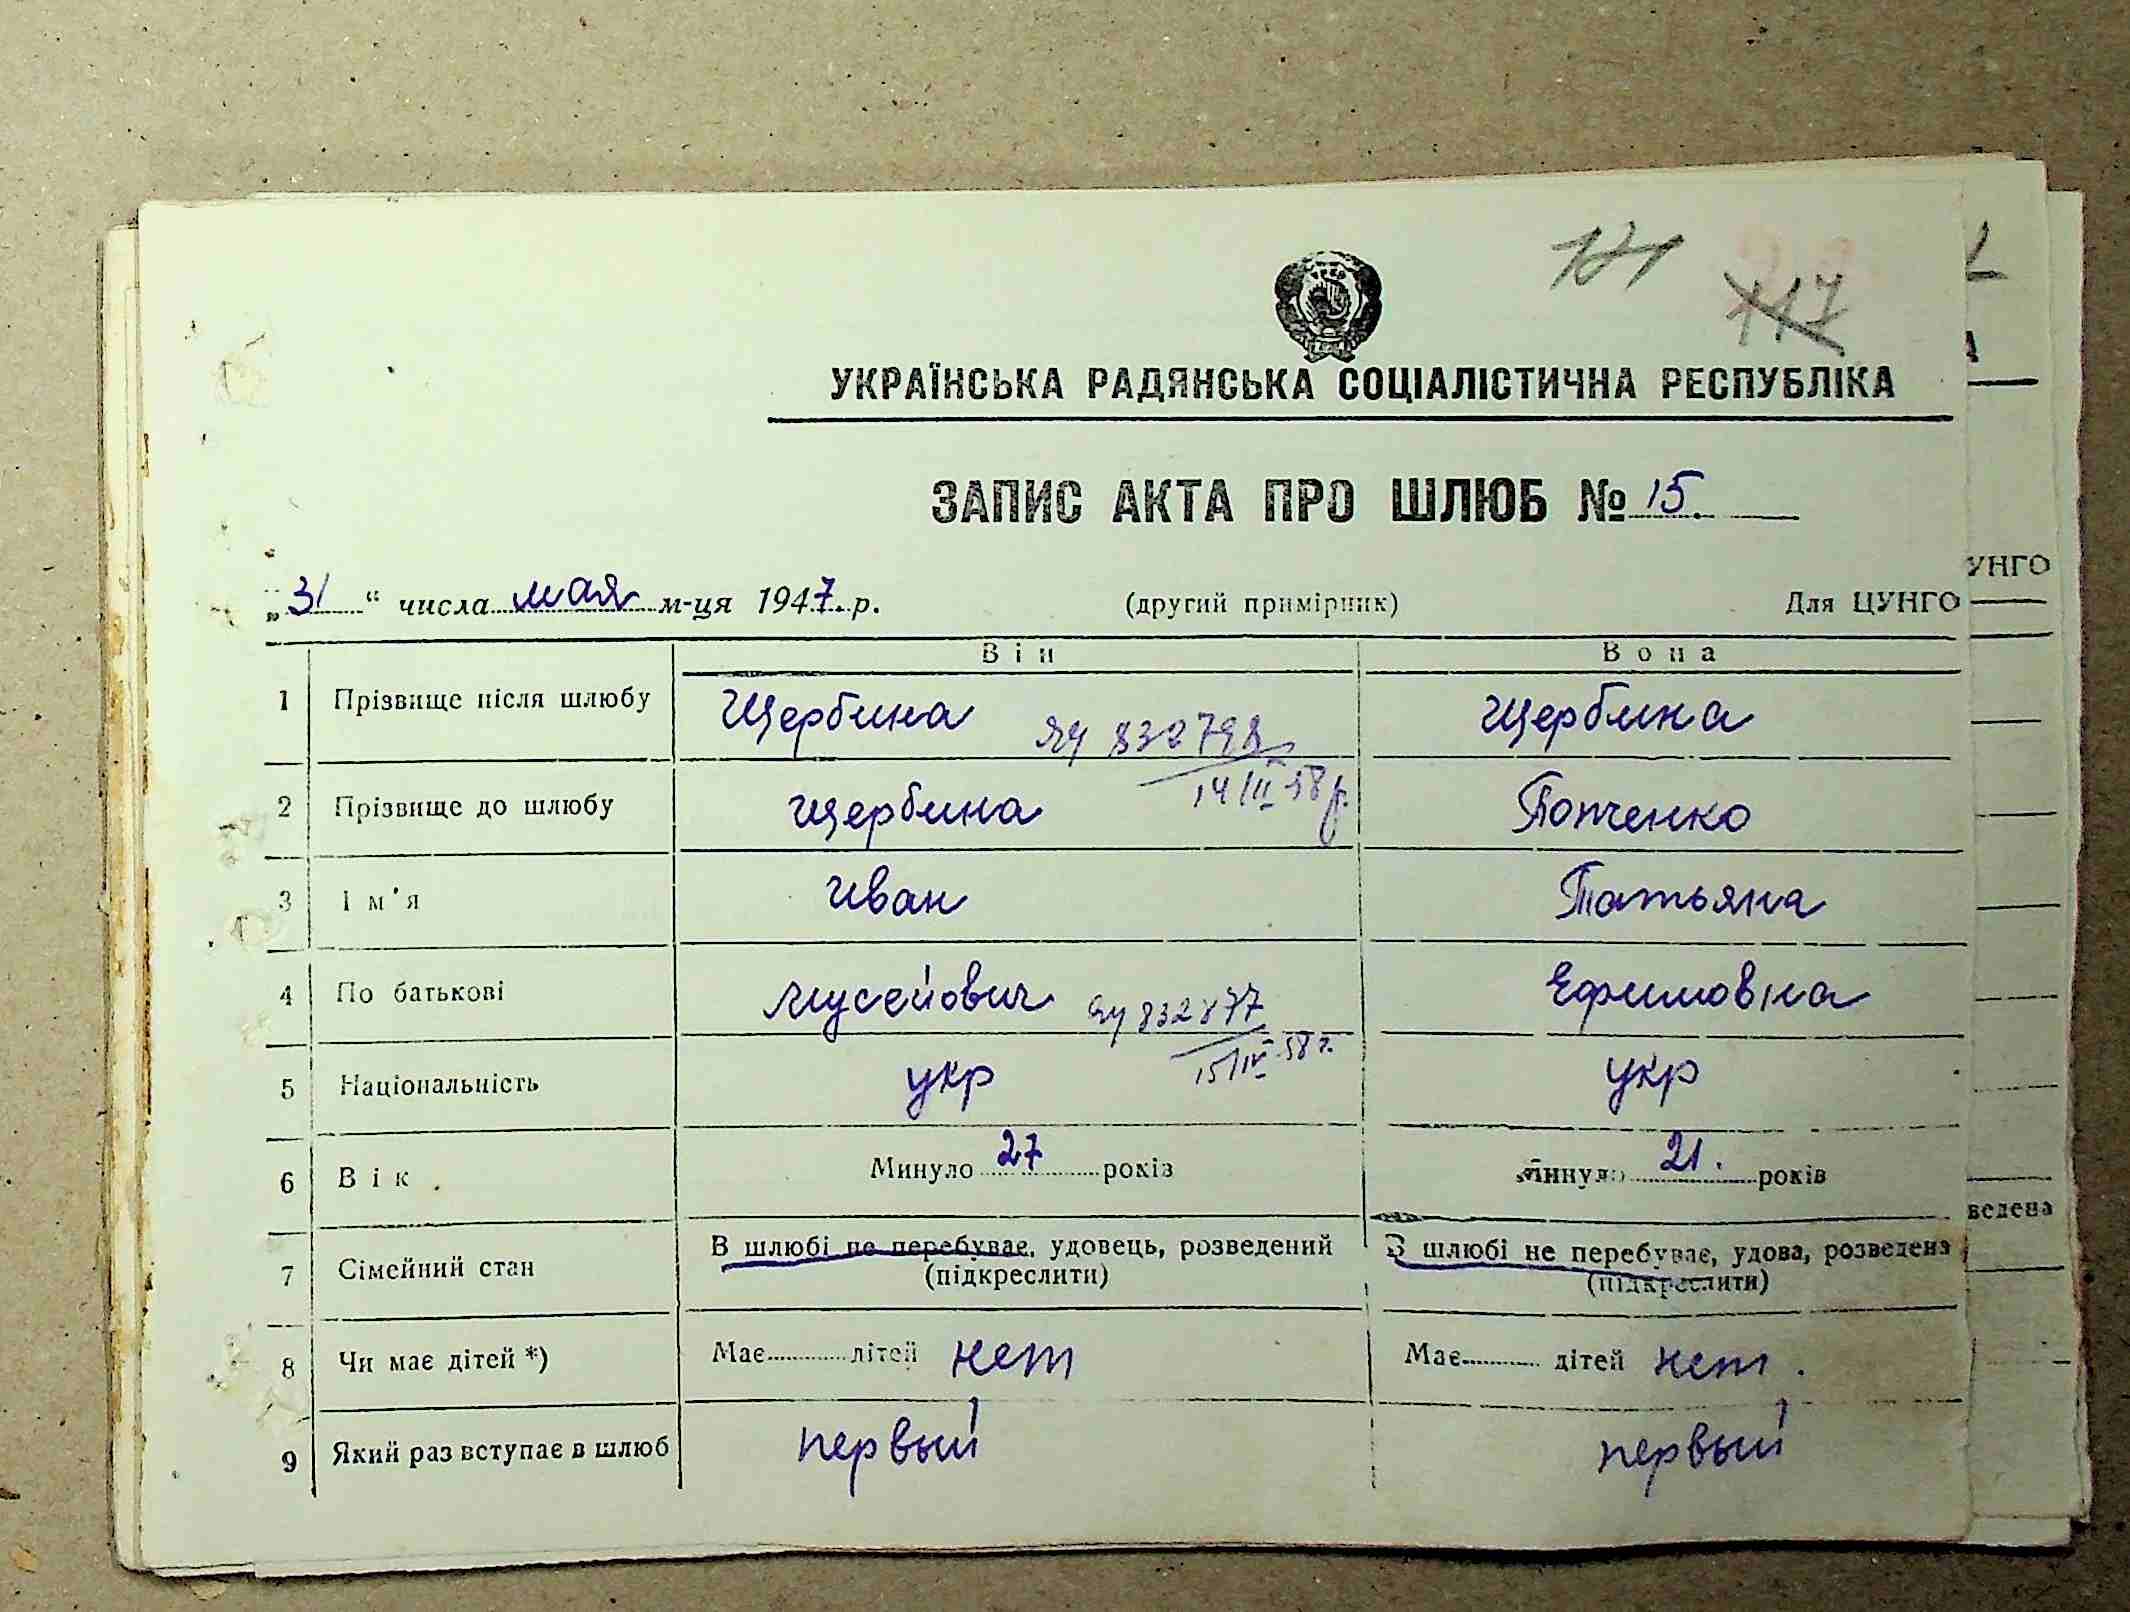 121
117
УКРАЇНСЬКА РАДЯНСЬКА СОЦІАЛІСТИЧНА РЕСПУБЛІКА
ЗАПИС АКТА ПРО ШЛЮБ № 15.
„31“ числа мая м-ця 1947 р. (другий примірник) Для ЦУНГО
УНГО
Він Вона
1 Прізвище після шлюбу Щербина Щербина
832798
14/II 58 р.
2 Прізвище до шлюбу Щербина Потченко
3 Ім'я Иван Татьяна
4 По батькові Мусейович Ефимовна
832877
15/IV 58 г.
5 Національність укр укр
6 Вік Минуло 27 років Минуло 21. років
ведена
7 Сімейний стан В шлюбі не перебуває, удовець, розведений В шлюбі не перебуває, удова, розведена
(підкреслити) (підкреслити)
8 Чи має дітей *) Має дітей нет Має дітей нет.
9 Який раз вступає в шлюб первый первый